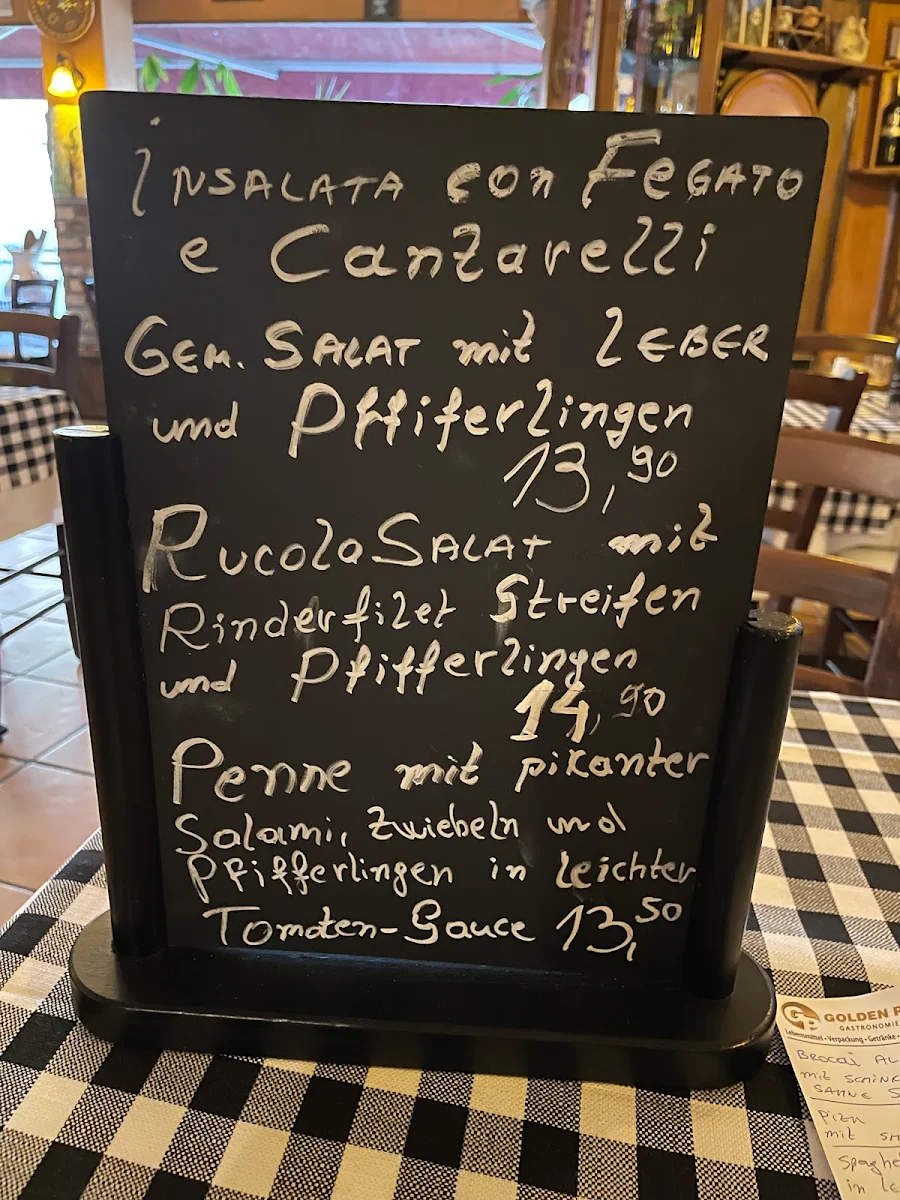 INSALATA con FeGATO
e Canzarelli
GEM. SALAT mit LEBER
und Pffiferlingen
13,90
RucolaSALAT mit
Rinderfilet Streifen
und Pfifferlingen
14,90
Penne mit pikanter
Salami, Zwiebeln und
Pfifferlingen in leichter
Tomaten-Sauce 13,50
GP GOLDEN
GASTRONOMIE
Lebensmittel • Verpackung • Getränke •
mit
mit
in